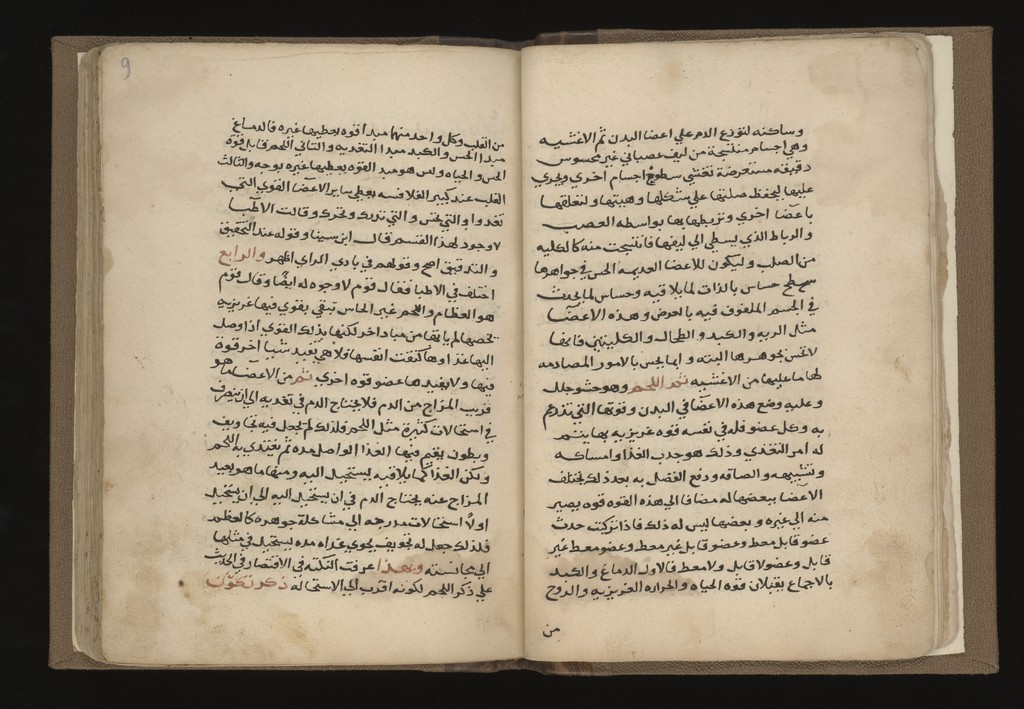 وساكنه لتوزع الدم علي اعضا البدن ثم الاغشيه
وهي اجسام منتسجة من ليف عصباني غير محسوس
دقيقه مستعرضة تغشي سطوح اجسام اخري ويجري
عليها ليحفظ صلتها علي شكلها وهيتها ولتعلقها
باعضا اخري وتربطها بها بواسطه العصب
والرباط الذي يسطي الي ليفها فانتسجت منه كالكليه
من الصلب وليكون للاعضا العديمه الحس في جواهرها
سطح حساس بالذات لما يلاقيه وحساس لما يحدث
في الجسم الملفوف فيه بالعرض وهذه الاعضا
مثل الريه والكبد والطحال والكليتين فانها
لا تحس بجوهرها البته وانما يحس بالامور المصادمه
لها ما عليها من الاغشيه ثم اللحم وهو حشو خلل
وعليه وضع هذه الاعضا في البدن وقوتها التي تندعم
به وكل عضو فله في نفسه قوه غريزيه بها يتم
له امر التغذي وذلك هو جذب الغذا وامساكه
وتشبيهه والصاقه ودفع الفضل به بعد ذلك تختلف
الاعضا ببعضها له مضافا الي هذه القوه قوه يصير
منه الي غيره وبعضها ليس له ذلك فاذا تركبت حدث
عضو قابل معط وعضو قابل غير معط وعضو معط غير
قابل وعضو لا قابل ولا معط فالاول الدماغ والكبد
بالاجماع يقبلان قوه الحياه والحراره الغريزيه والروح
من
9
من القلب وكل واحد منهما مبدا قوه يعطيها غيره فالدماغ
مبدا الحس والكبد مبدا التغذيه والثاني اللحم قابل قوة
الحس والحياه وليس هو مبدا القوه يعطيها غيره بوجه والثالث
القلب عند كبير الفلاسفه يعطي ساير الاعضا القوي التي
تغذوا والتي تحس والتي تدرك وتحرك وقالت الاطبا
لا وجود لهذا القسم قال ابن سينا وقوله عند التحقيق
والتدقيق اصح وقولهم في بادي الراي اظهر والرابع
اختلف في الاطبا فقال قوم لا وجوه له ايضا وقال قوم
هو العظام واللحم غير الحاس تبقي بقوي فيها غريزيه
تخصها لم ياتها من مباد اخر لكنها بذلك القوي اذا وصل
اليها غذاوها كفت انفسها فلا هي يفيد شيا اخر قوة
فيها ولا يفيدها عضو قوه اخري ثم من الاعضا ما هو
قريب المزاج من الدم فلا يحتاج الدم في تغذيه الي ان يتصرف
في استحالات كثيرة مثل اللحم فلذلك لم يجعل فيه تجاويف
وبطون يقيم فيها الغذا الواصل مده ثم يغتذي به اللحم
ولكن الغذا كما يلاقيه يستحيل اليه ومنها ما هو بعيد
المزاج عنه يحتاج الدم في ان يستحيل اليه الي ان يستحيل
اولا استحالات مدرجه الي مشاكلة جوهره كالعظم
فلذلك جعل له تجويف يحوي غذاه مده يستحيل في مثلها
الي مجانسته وبهذا عرفت النكته في الاقتصار في الحديث
علي ذكر اللحم لكونه اقرب الي الاستحاله ذكر تكون